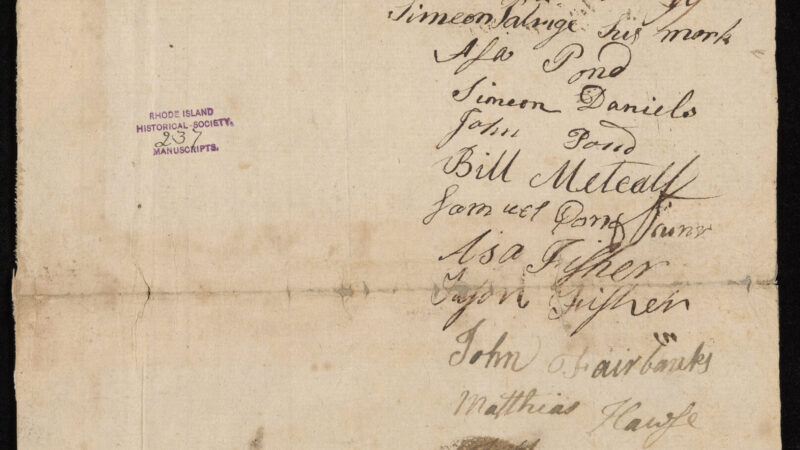 RHODE ISLAND
HISTORICAL SOCIETY.
237
MANUSCRIPTS.
Simeon his mark
Asa Pond
Simeon Daniels
John Pond
Bill Metcalf
Samuel
Asa Fisher
Fisher
John Fairbanks
Matthias Hawse